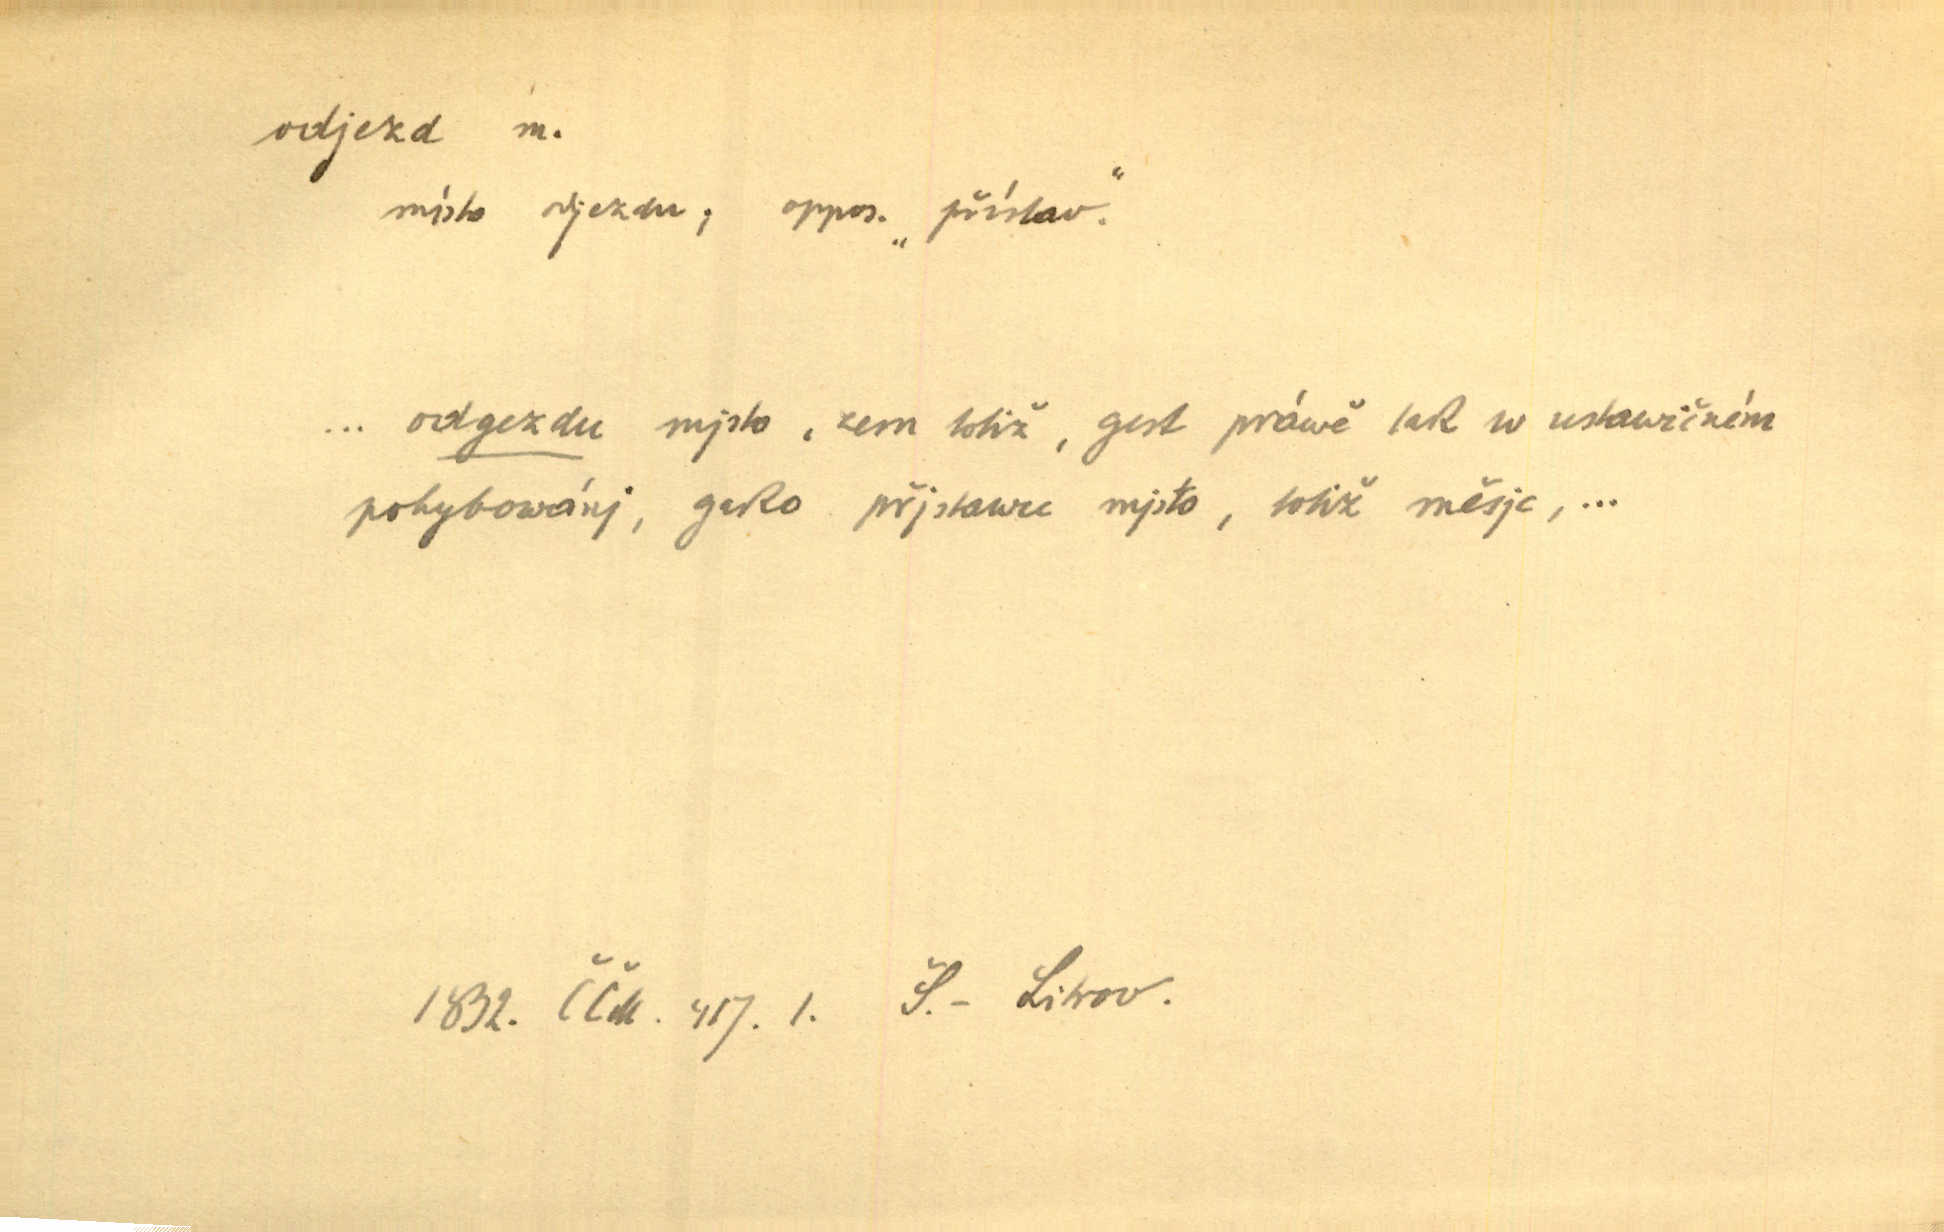 odjezd m.
místo odjezdu; oppos. „přístav.“
... odgezdu mjsto, zem totiž, gest práwě tak w ustawičném
pohybowánj, gako přjstawu mjsto, totiž měsjc, ...
1832. ČČM. 417. 1. Š.- Litrov.